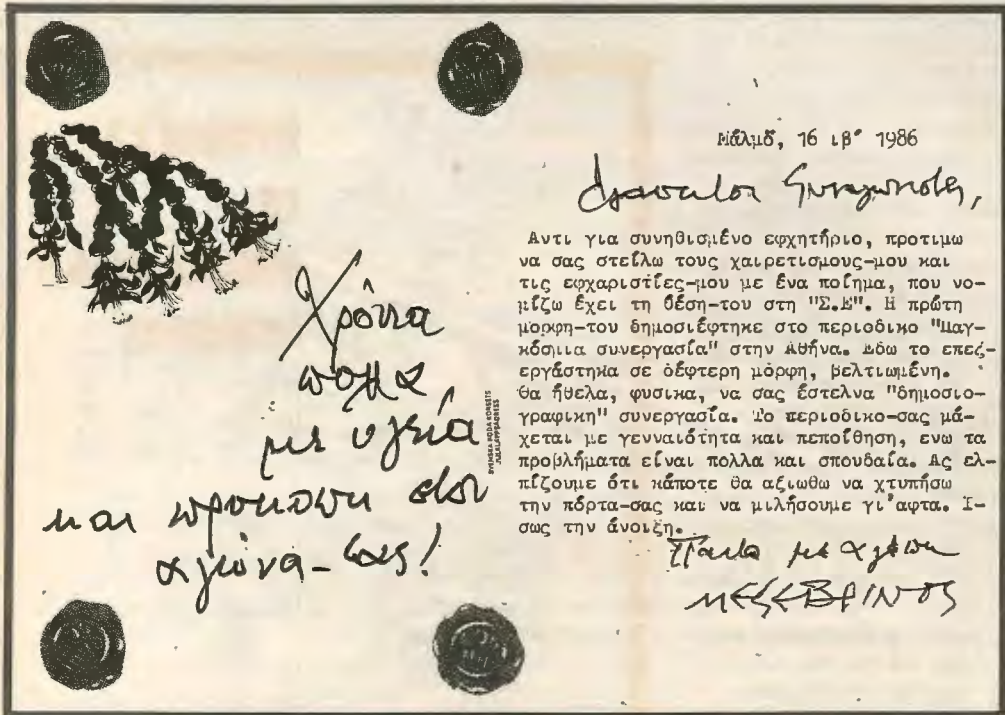 Χρόνια
πολλα
με υγεία
και προκοπη στον
αγώνα-σας!
SVENSKA RÖDA KORSETS
Μάλμδ, 16 ιβ' 1986
Αγαπητοι Συναγωνιστες,
Αντι για συνηθισμένο εφχητήριο, προτιμω
να σας στείλω τους χαιρετισμους-μου και
τις εφχαριστίες-μου με ένα ποίημα, που νο-
μίζω έχει τη θέση-του στη "Σ.Ε". Η πρώτη
μορφη-του δημοσιέφτηκε στο περιοδικο "Παγ-
κόσμια συνεργασία" στην Αθήνα. Εδω το επεξ-
εργάστηκα σε δέφτερη μόρφη, βελτιωμένη.
Θα ήθελα, φυσικα, να σας έστελνα "δημοσιο-
γραφικη" συνεργασία. Το περιοδικο-σας μά-
χεται με γενναιότητα και πεποίθηση, ενω τα
προβλήματα είναι πολλα και σπουδαία. Ας ελ-
πίζουμε ότι κάποτε θα αξιωθω να χτυπήσω
την πόρτα-σας και να μιλήσουμε γι'αφτα. Ι-
σως την άνοιξη.
Πάντα με αγάπη
ΜΕΣΕΒΡΙΝΟΣ